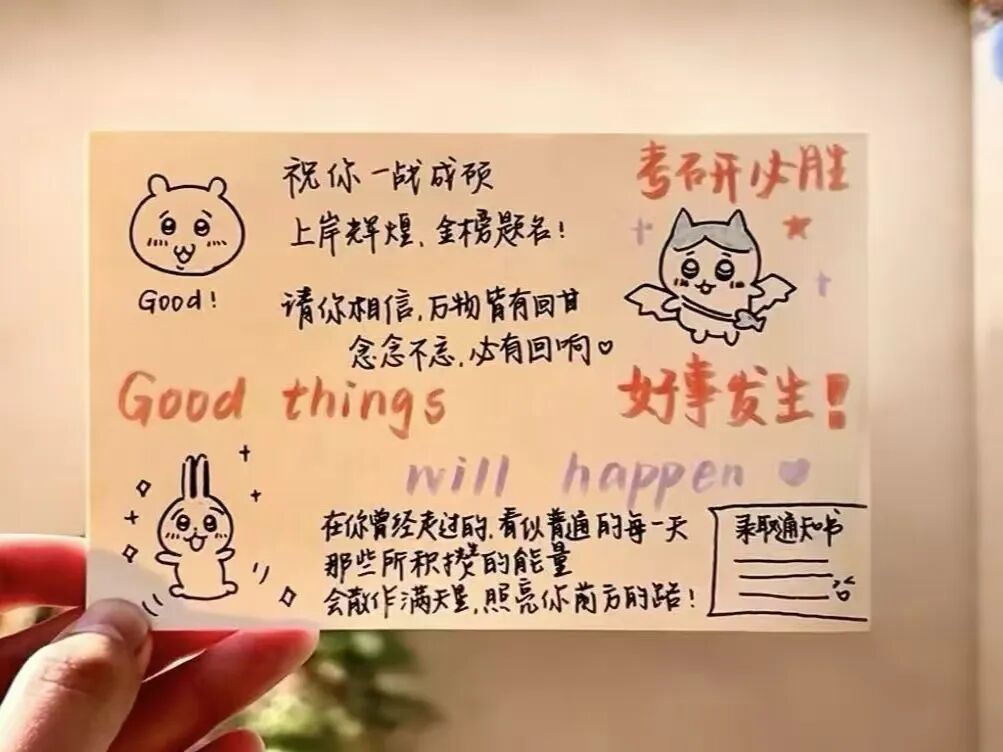 祝你一战成硕
上岸辉煌，金榜题名！
考研必胜
Good！
请你相信，万物皆有回甘
念念不忘，必有回响♡
Good things
好事发生！
will happen
在你曾经走过的，看似普通的每一天
那些所积攒的能量
会散作满天星，照亮你前方的路！
录取通知书